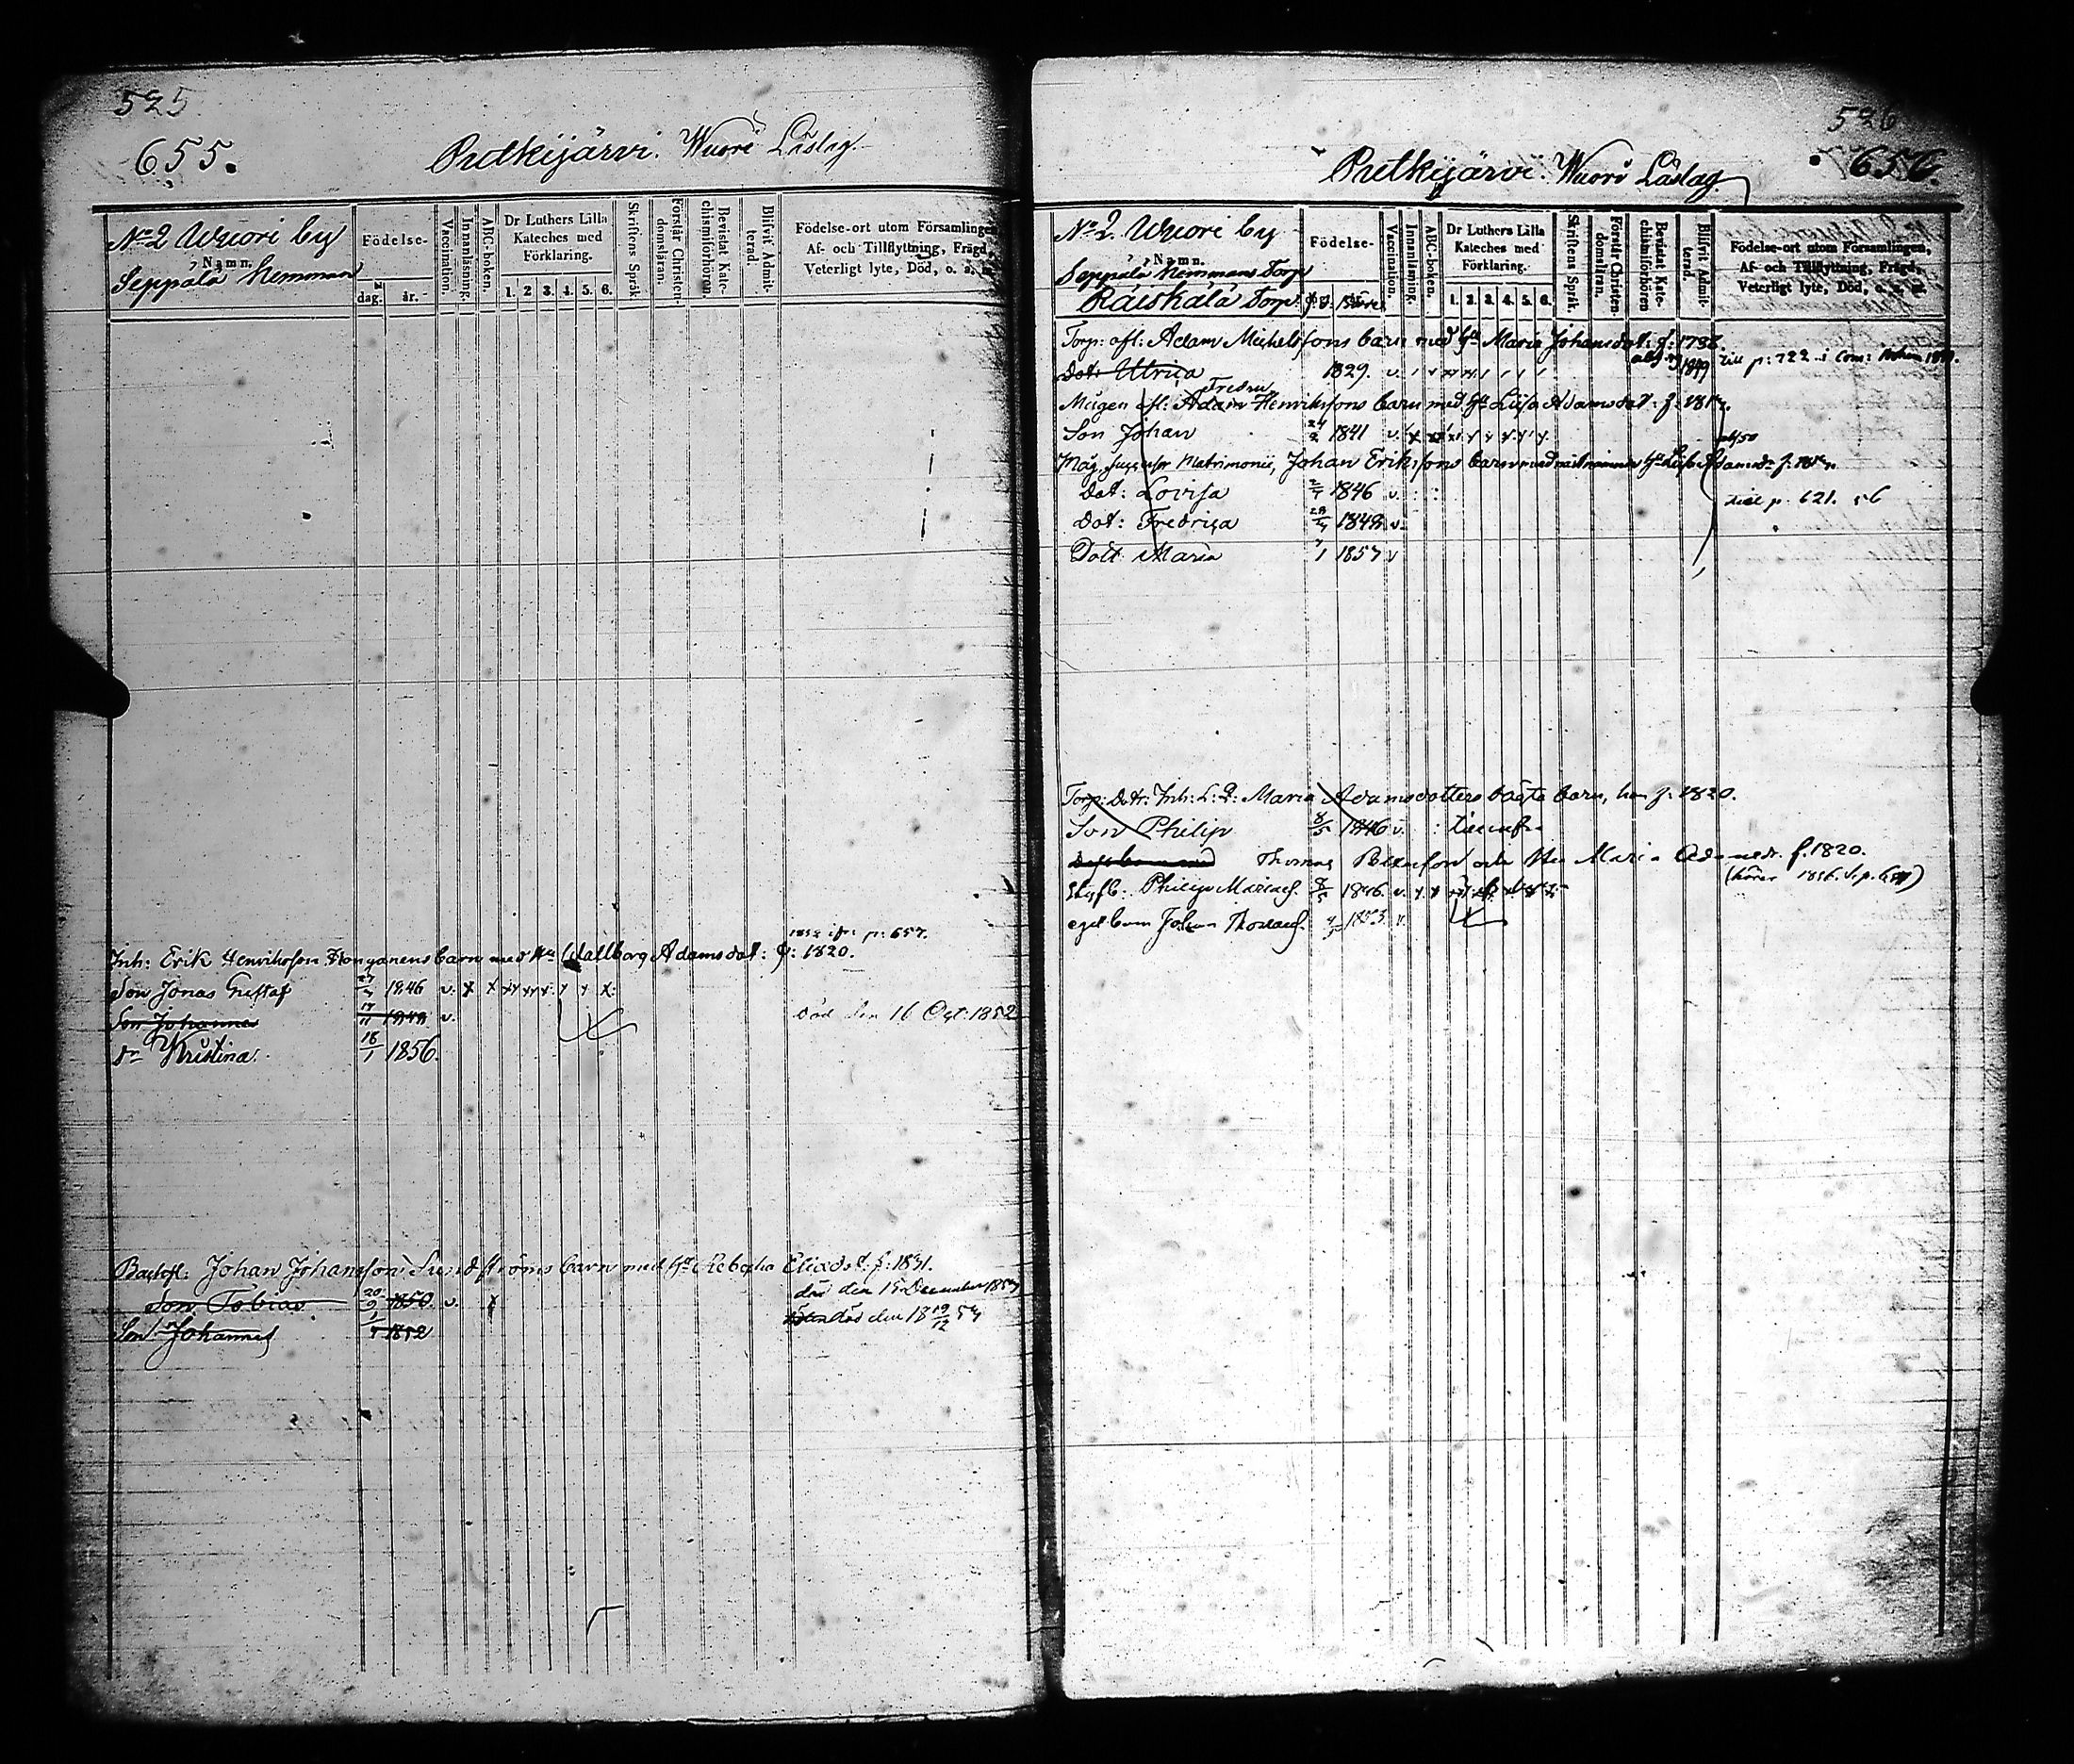 525
655.
Putkijärvi. Wuori Läslag.
No 2 Wuori by
Namn.
Seppälä Hemman
Födelse-
dag. år.
Vaccination.
Innanläsning.
ABC-boken.
Dr Luthers Lilla
Kateches med
Förklaring.
1. 2 3. 4. 5. 6.
Skriftens Språk
Förstår Christen-
domsläran.
Bevistat Kate-
chismiförhören.
Blifvit Admit-
terad.
Födelse-ort utom Församlingen
Af- och Tillflyttning, Frägd,
Veterligt lyte, Död, o. s.
p: 657.
Inh: Erik Henrikson barn med Hu Wallborg Adamsdot: f: 1820.
Son Jonas Gustaf 1846 v. x x
Son Johannes v. död den 16 Oct: 1852
Dr Kristina. 18/1 1856.
Johan Johansson Sundströms barn med Hu Rebecka Eliædot. f: 1831.
Son Tobias 20/9 1850. v. x död den 15 December 1857
Son Johannes 1852 död den 18 19/12 57
526
656.
Putkijärvi. Wuori Läslag
No 2. Wuori by
Namn.
Seppälä Hemmans Torp
Räiskälä Torp.
Födelse-
Vaccination.
Innanläsning.
ABC-boken.
Dr Luthers Lilla
Kateches med
Förklaring.
1. 2. 3. 4. 5. 6.
Skriftens Språk.
Förstår Christen-
domsläran.
Bevistat Kate-
chismiförhören
Blifvit Admit-
terad.
Födelse-ort utom Församlingen,
Af- och Tillflyttning, Frägd,
Veterligt lyte, Död, o. s.
Torp: afl: Adam Michelssons barn med Hu Maria Johansdot: f: 1798.
Dot: Ulrica 1829. v. 1849 till p: 722 i Com:
Mågen afl: Adam Henrikssons barn med Hu Lisa Adamsdot: f: 1817.
Son Johan 24/2 1841 v.
Måg, Matrimonii, Johan Erikssons barn med Hu Lisa Adamsdr
Dot: Lovisa 1846 v. till p. 621. 56
Dot: Fredrica 1849 v.
Dott Maria 1857 v
Torp: Dotr: Inh: Maria Adamsdotters oägta barn, hon f: 1820.
Son Philip 8/5 1846 v.
Thomas och Hu Maria f. 1820.
Philip Mariæs. 8/5 1846. v.
(hörer 1856.
eget barn Johan Thomæs. 1853. v.